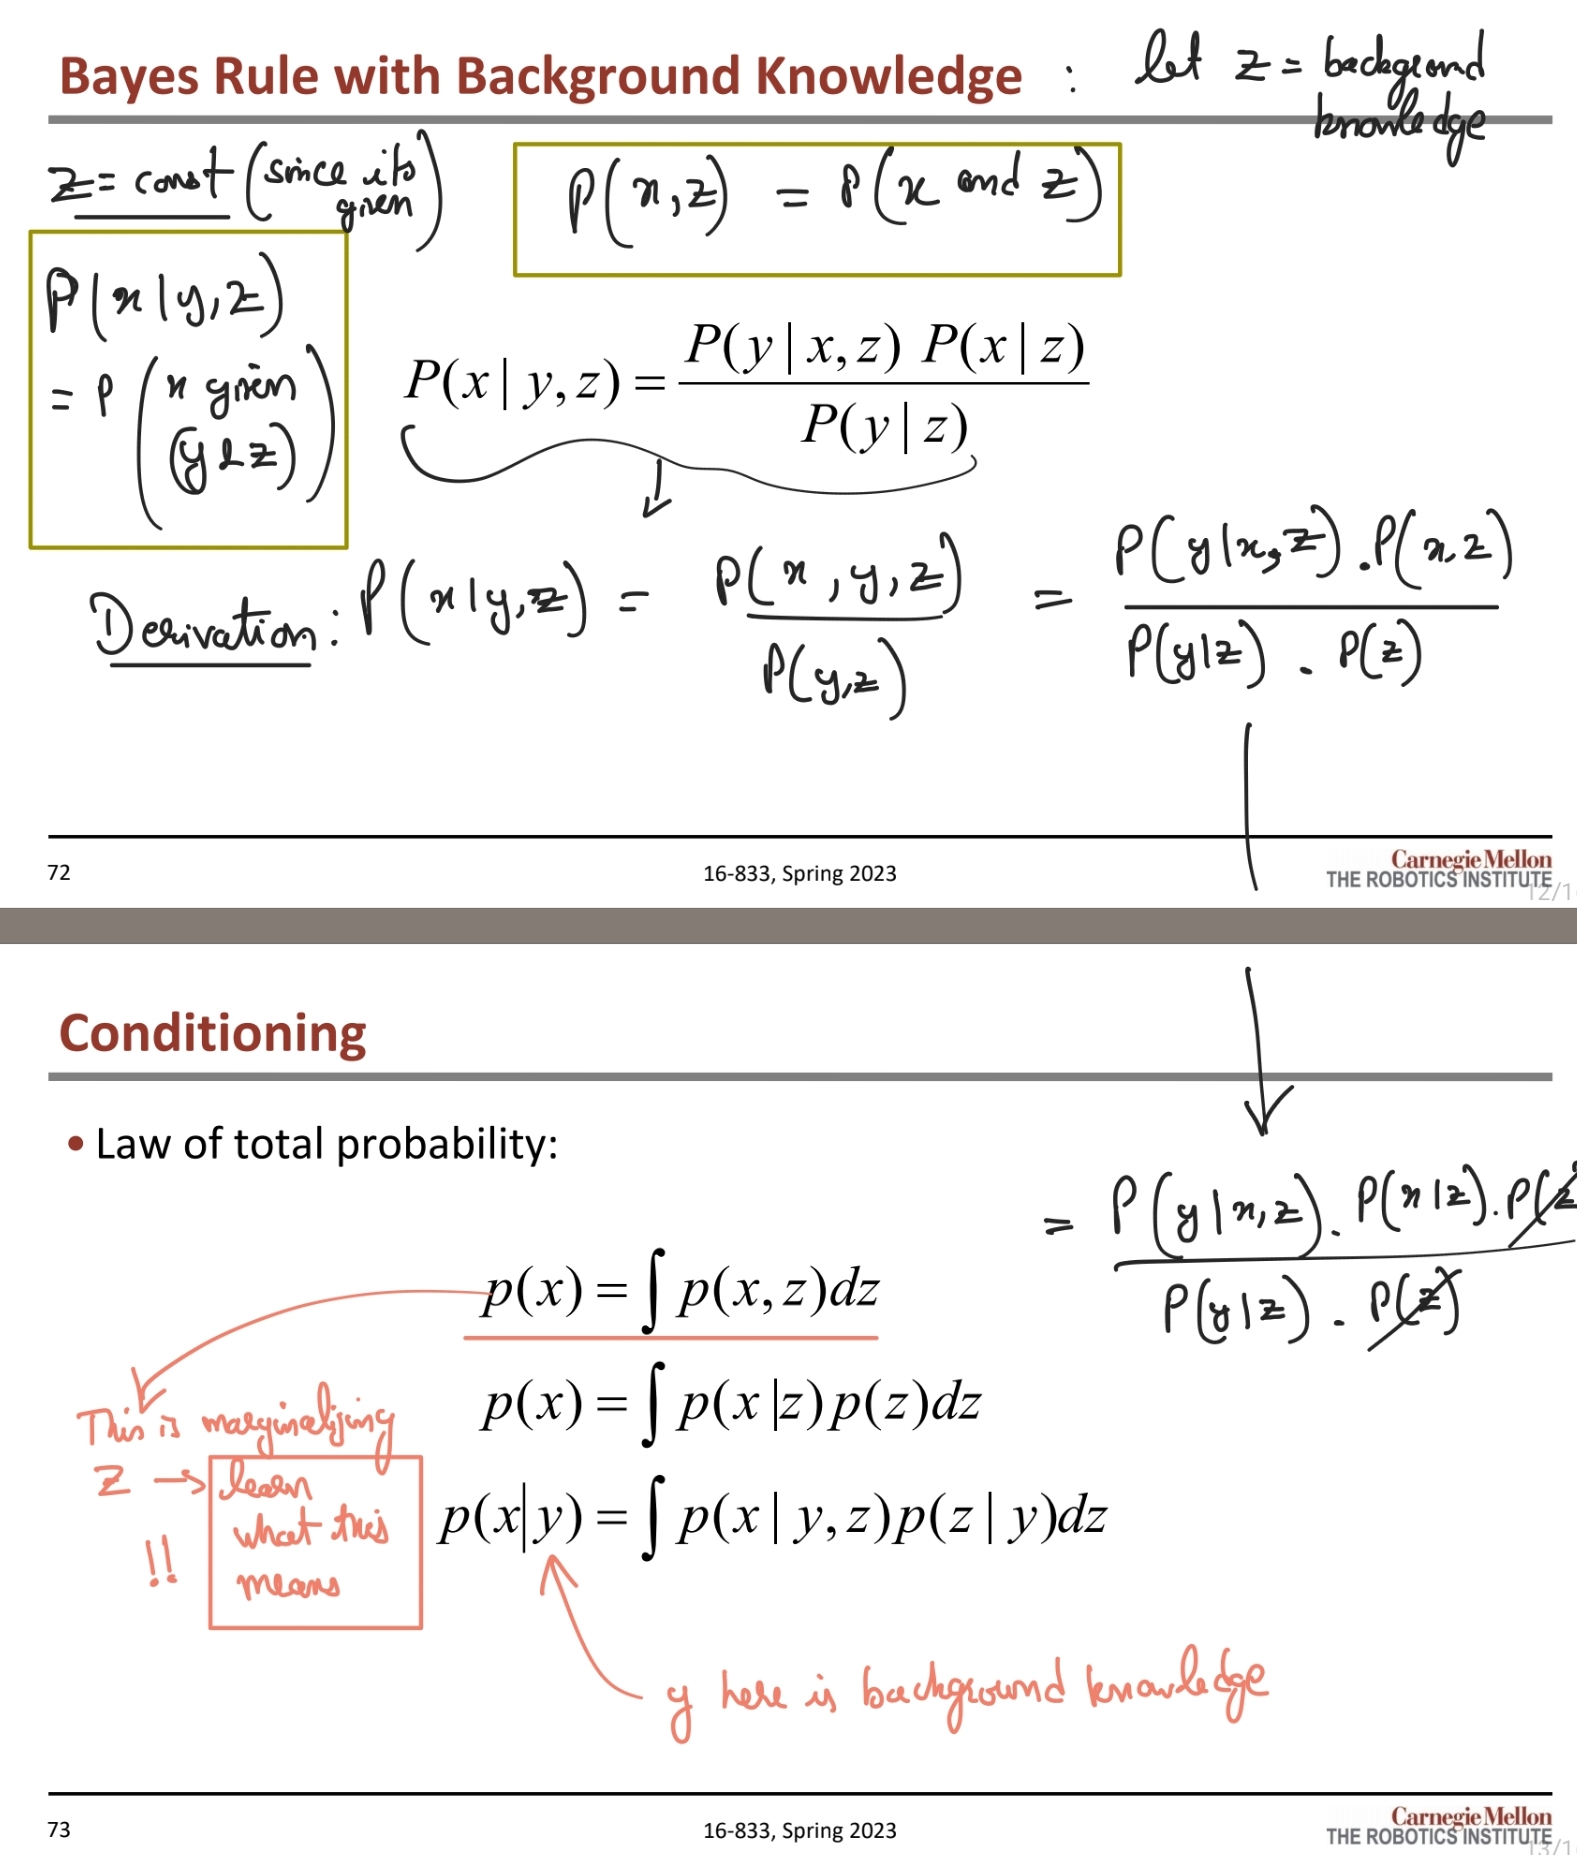 Bayes Rule with Background Knowledge : let z = background
knowledge
z = const (since its
given)
P(x,z) = P(x and z)
P(x|y,z)
= P (x given
(y & z))
P(x | y, z) = P(y | x, z) P(x | z)
P(y | z)
Derivation: P(x|y,z) = P(x,y,z) = P(y|x,z).P(x,z)
P(y,z) P(y|z) . P(z)
72
16-833, Spring 2023
Carnegie Mellon
THE ROBOTICS INSTITUTE
12/1
Conditioning
• Law of total probability:
= P(y|x,z). P(x|z). P(z
P(y|z) . P(z)
p(x) = ∫ p(x, z)dz
p(x) = ∫ p(x |z) p(z)dz
This is marginalizing
z → learn
what this
means
!!
p(x|y) = ∫ p(x | y, z) p(z | y)dz
y here is background knowledge
73
16-833, Spring 2023
Carnegie Mellon
THE ROBOTICS INSTITUTE
13/1